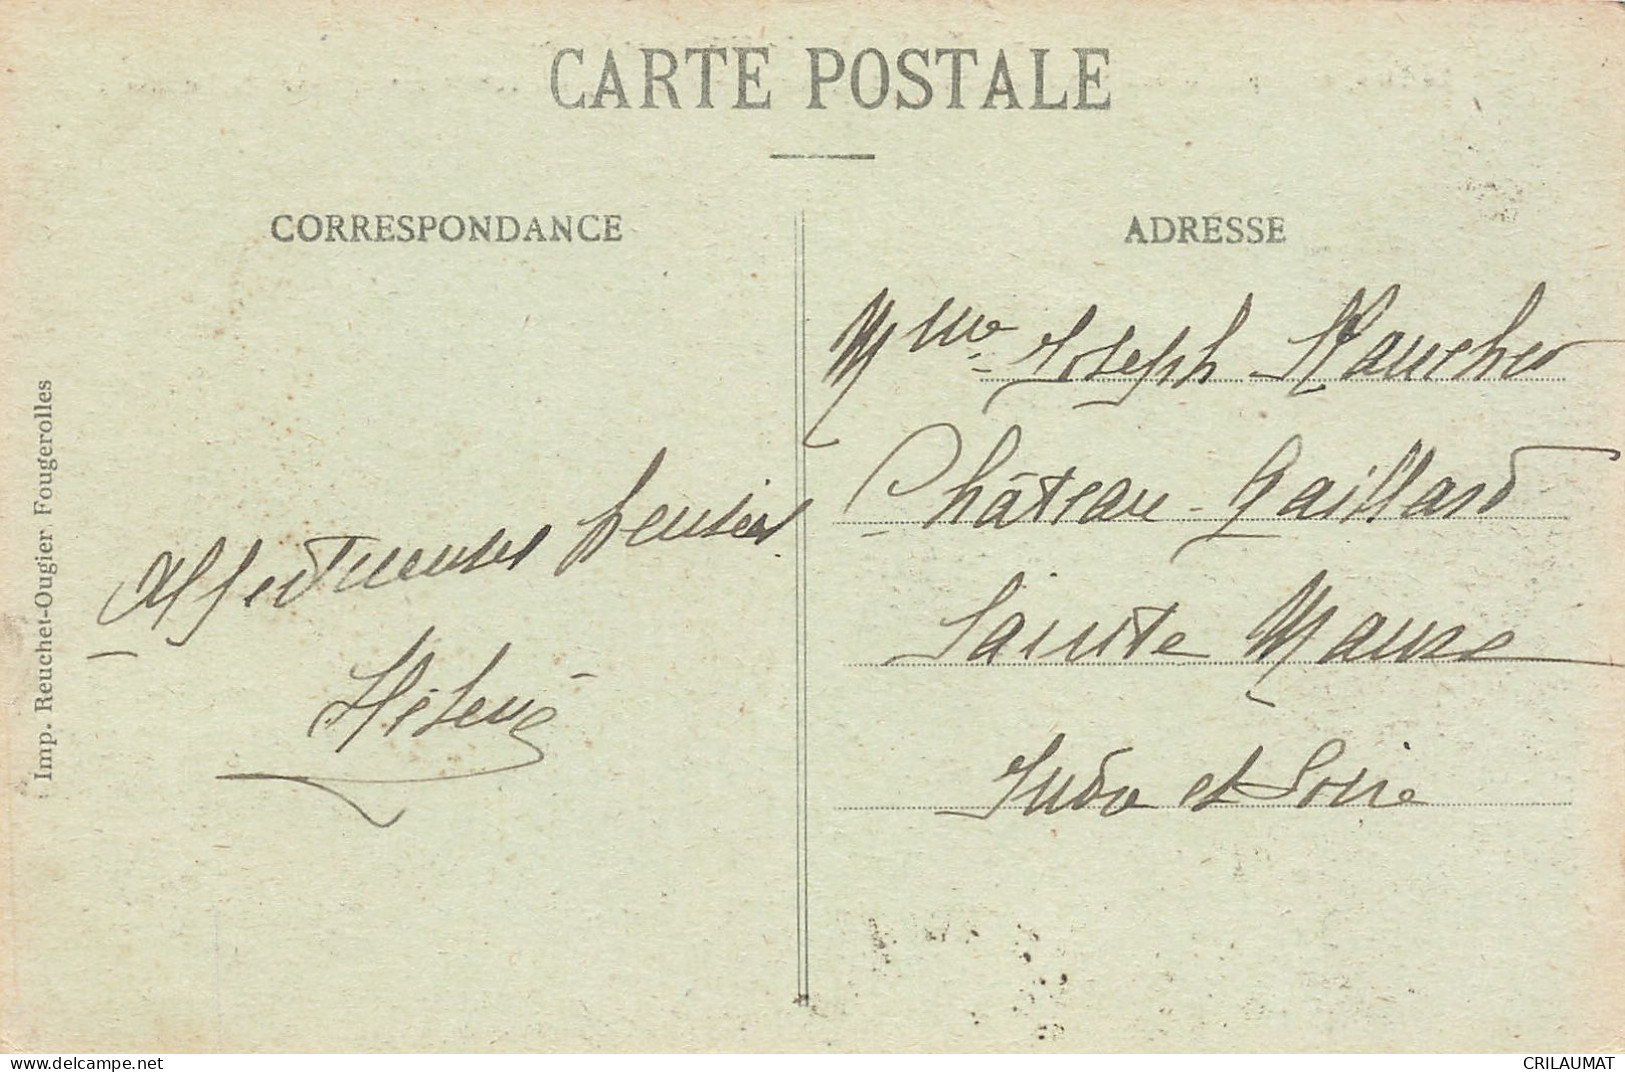 CARTE POSTALE
CORRESPONDANCE
ADRESSE
Mme Joseph
Château-Gaillard
Sainte Maure
Indre et Loire
Affectueuses pensées
Hélène
Imp. Reuchet-Ougier Fougerolles
https://www.delcampe.net
CRILAUMAT